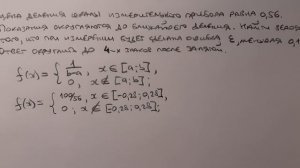 Цена деления шкалы измерительного прибора равна 0,56.
Показания округляются до ближайшего деления. Найти
того, что при измерении будет сделана ошибка ε, меньшая 0,1
Ответ округлить до 4-х знаков после запятой.
f(x) = { 1/(b-a), x ∈ [a; b],
0, x ∉ [a; b];
f(x) = { 100/56, x ∈ [-0,28; 0,28],
0, x ∉ [-0,28; 0,28];